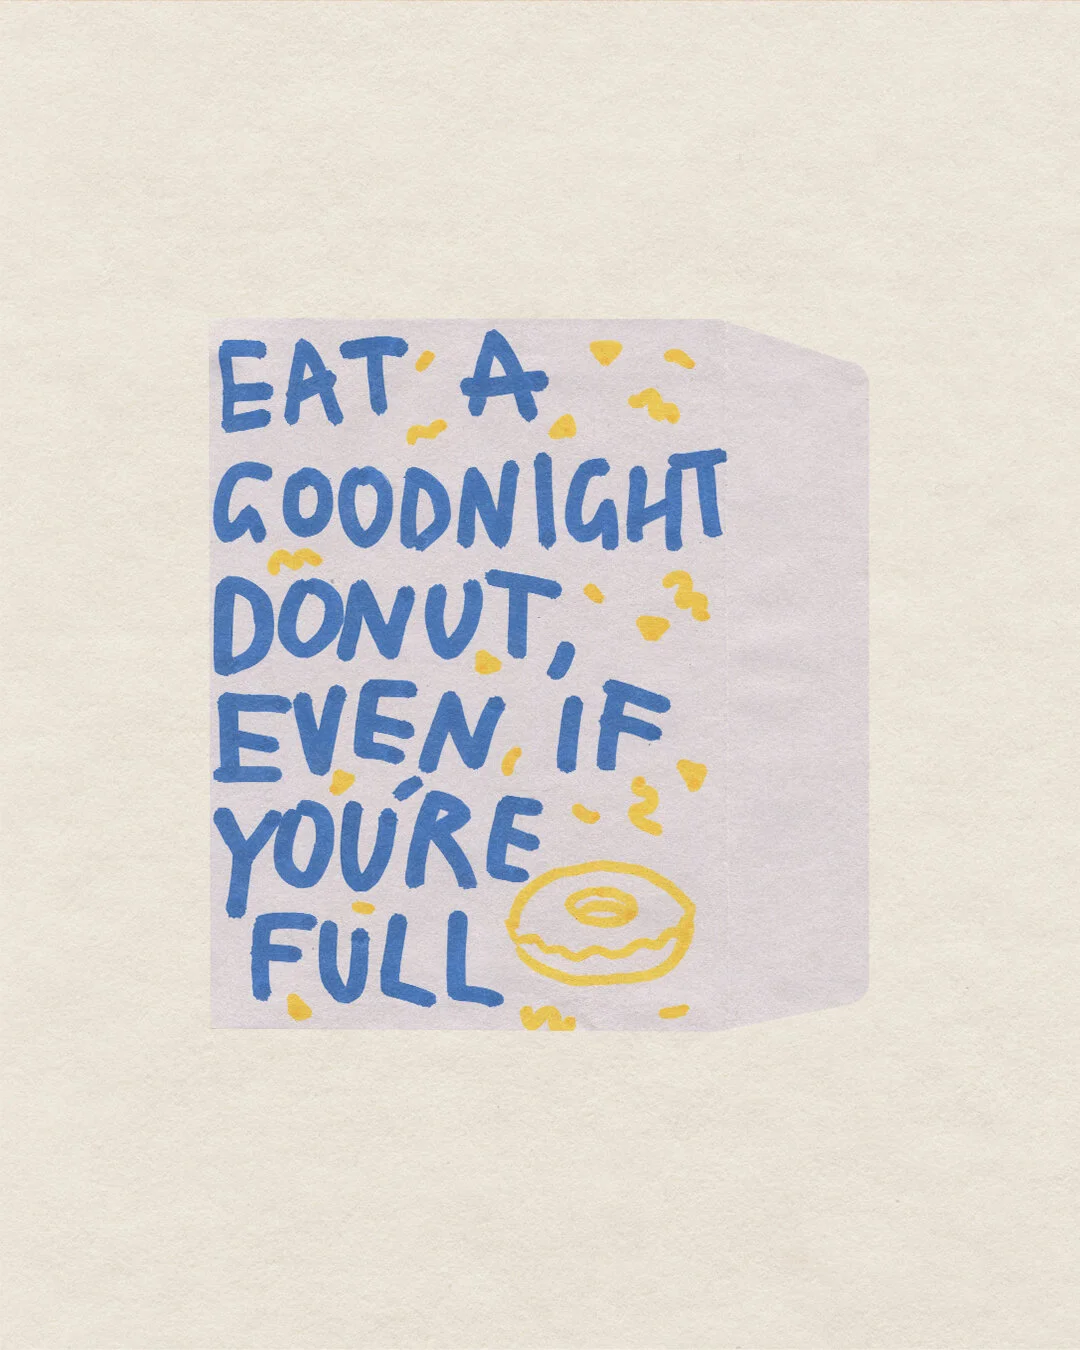 EAT A
GOODNIGHT
DONUT,
EVEN IF
YOU'RE
FULL